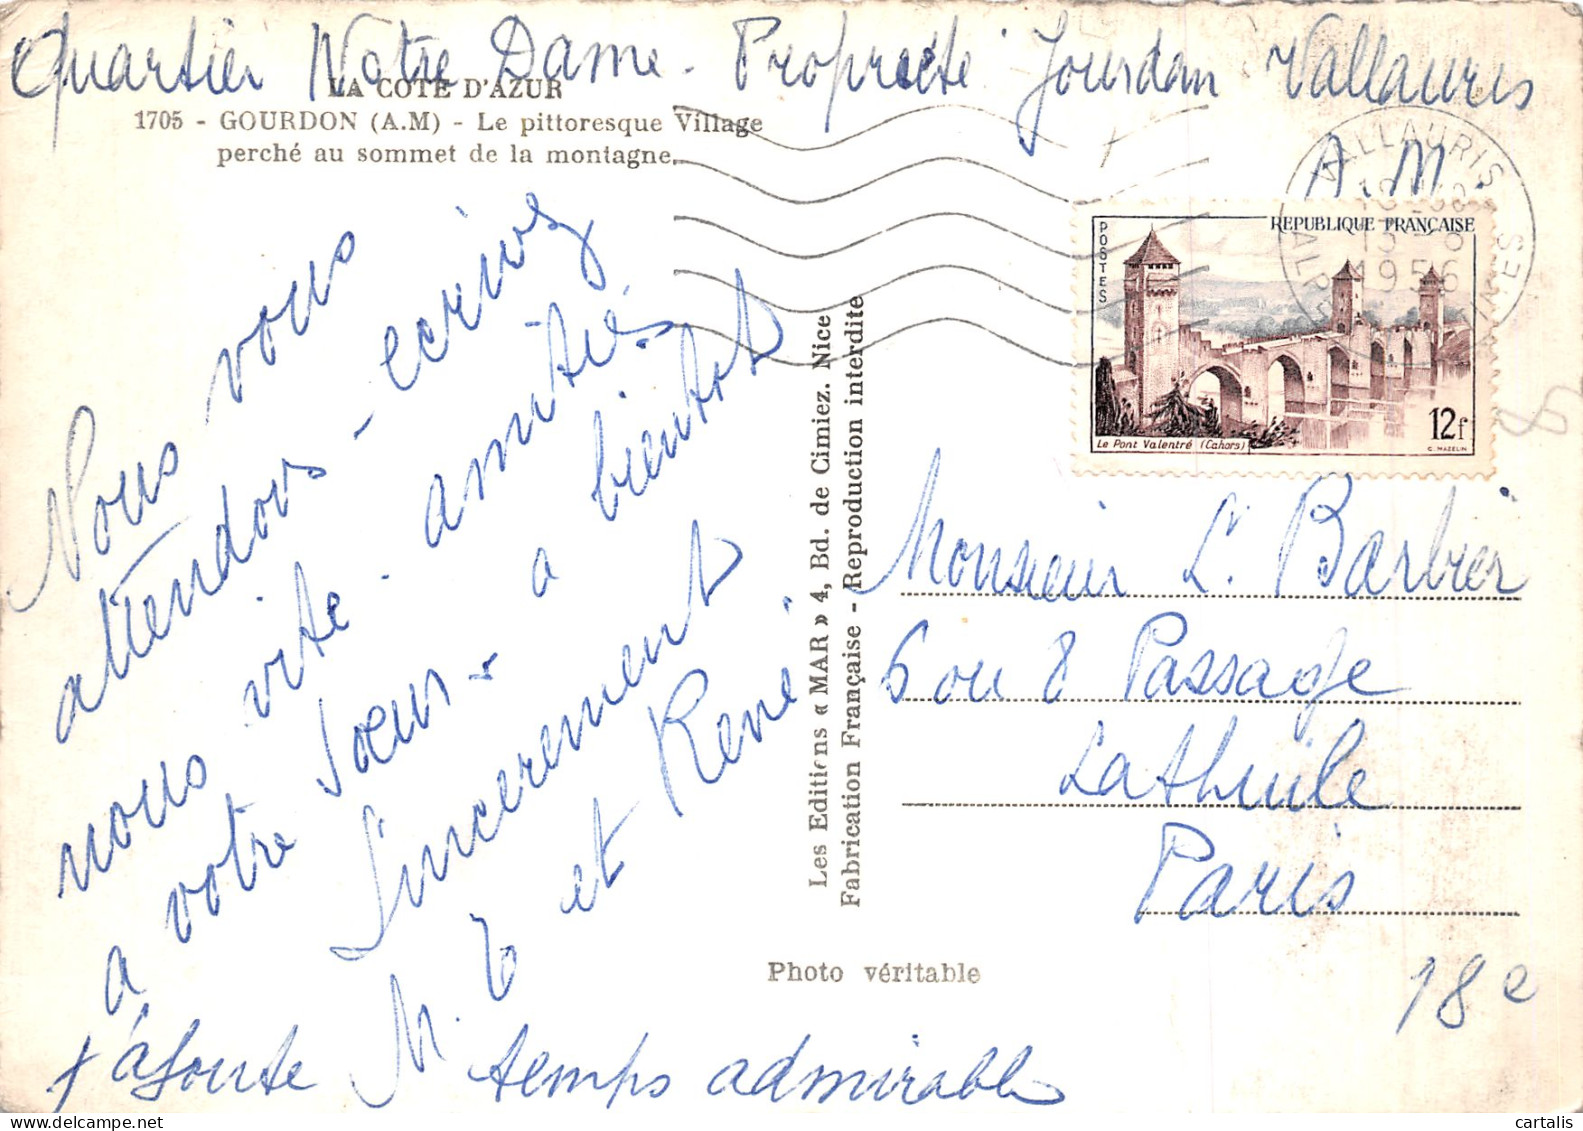 Quartier Notre Dame - Propriete Jourdan Vallauris
A.M.
LA COTE D'AZUR
1705 - GOURDON (A.M) - Le pittoresque Village
perché au sommet de la montagne.
Nous vous
attendons - ecrivez
nous vite. amitiés
a votre soeur - a bientot
Sincerement
M. et René
j'ajoute temps admirable
Les Editions « MAR » 4, Bd. de Cimiez. Nice
Fabrication Française - Reproduction interdite
VALLAURIS
1956
REPUBLIQUE FRANÇAISE
POSTES
12f
Le Pont Valentré (Cahors)
C. MAZELIN
8
Monsieur L. Barbier
6 ou 8 Passage
Lathuile
Paris
18e
Photo véritable
cartalis